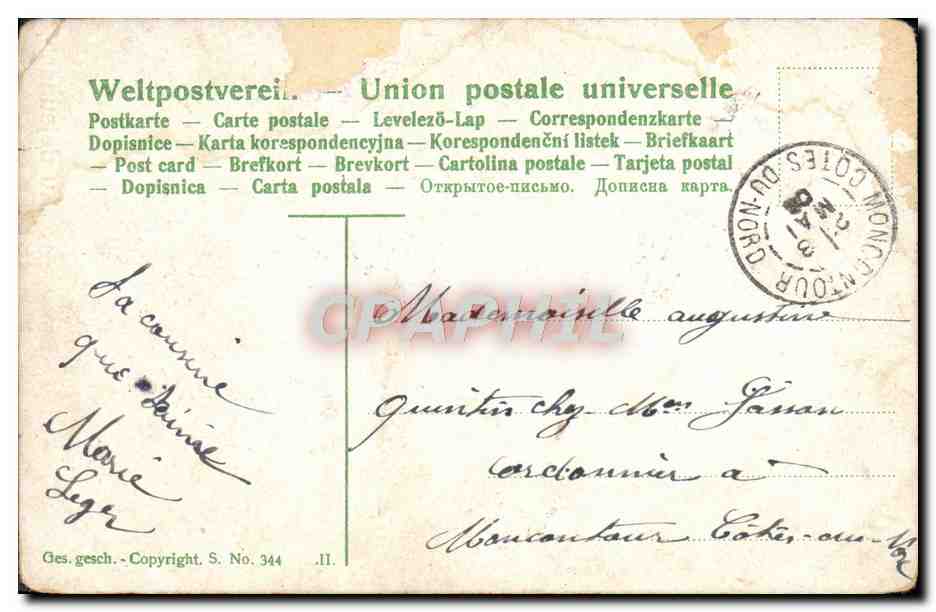 Weltpostverei. — Union postale universelle
Postkarte — Carte postale — Levelező-Lap — Correspondenzkarte —
Dopisnice — Karta korespondencyjna — Korespondenční listek — Briefkaart
— Post card — Brefkort — Brevkort — Cartolina postale — Tarjeta postal
— Dopisnica — Carta postala — Открытое-письмо. Дописна карта.
MONCONTOUR CÔTES-DU-NORD
CPAPHIL
Sa cousine
que
Marie
Leger
Mademoiselle augustine
Quintin chez Mer
cordonnier à
Moncontour Côtes-du-Nor
Ges. gesch. - Copyright. S. No. 344 .II.